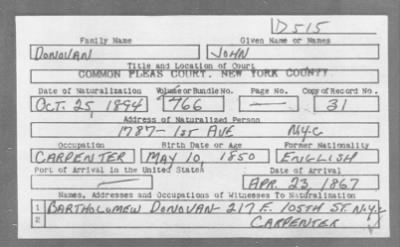 D515
Family Name Given Name or Names
DONOVAN JOHN
Title and Location of Court
COMMON PLEAS COURT, NEW YORK COUNTY
Date of Naturalization Volume or Bundle No. Page No. Copy of Record No.
OCT. 25, 1894 766 — 31
Address of Naturalized Person
1787- 1ST AVE N.Y.C
Occupation Birth Date or Age Former Nationality
CARPENTER MAY 10, 1850 ENGLISH
Port of Arrival in the United States Date of Arrival
— APR. 23, 1867
Names, Addresses and Occupations of Witnesses To Naturalization
1 BARTHOLOMEW DONOVAN- 217 E. 105TH ST. N.Y.C
2 CARPENTER